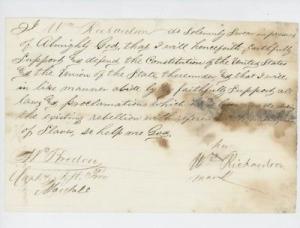 I Wm Richardson do Solemnly Swear in presence
of Almighty God, that I will henceforth, faithfully
Support & defend the Constitution of the United States
& the Union of the States thereunder & that I will
in like manner abide by & faithfully Support all
laws & proclamations which
the existing rebellion with refere
of Slaves, So help me God.
his
Wm Richardson
mark
Marshal